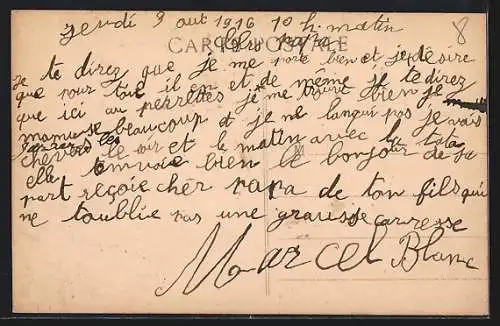 jeudi 3 out 1916 10 h. matin
8
CARTE POSTALE
cher papa
je te direz que je me porte bien et je désire
que pour toie il en et de même je te direz
que ici au perrettes je me trouve bien je
mamuse beaucoup et je ne langui pas je vais
le soir et le matin avec la tata
elle tenvoie bien le bonjour de sa
part reçoie chér papa de ton fils qui
ne toublie pas une grausse carresse
Marcel Blanc